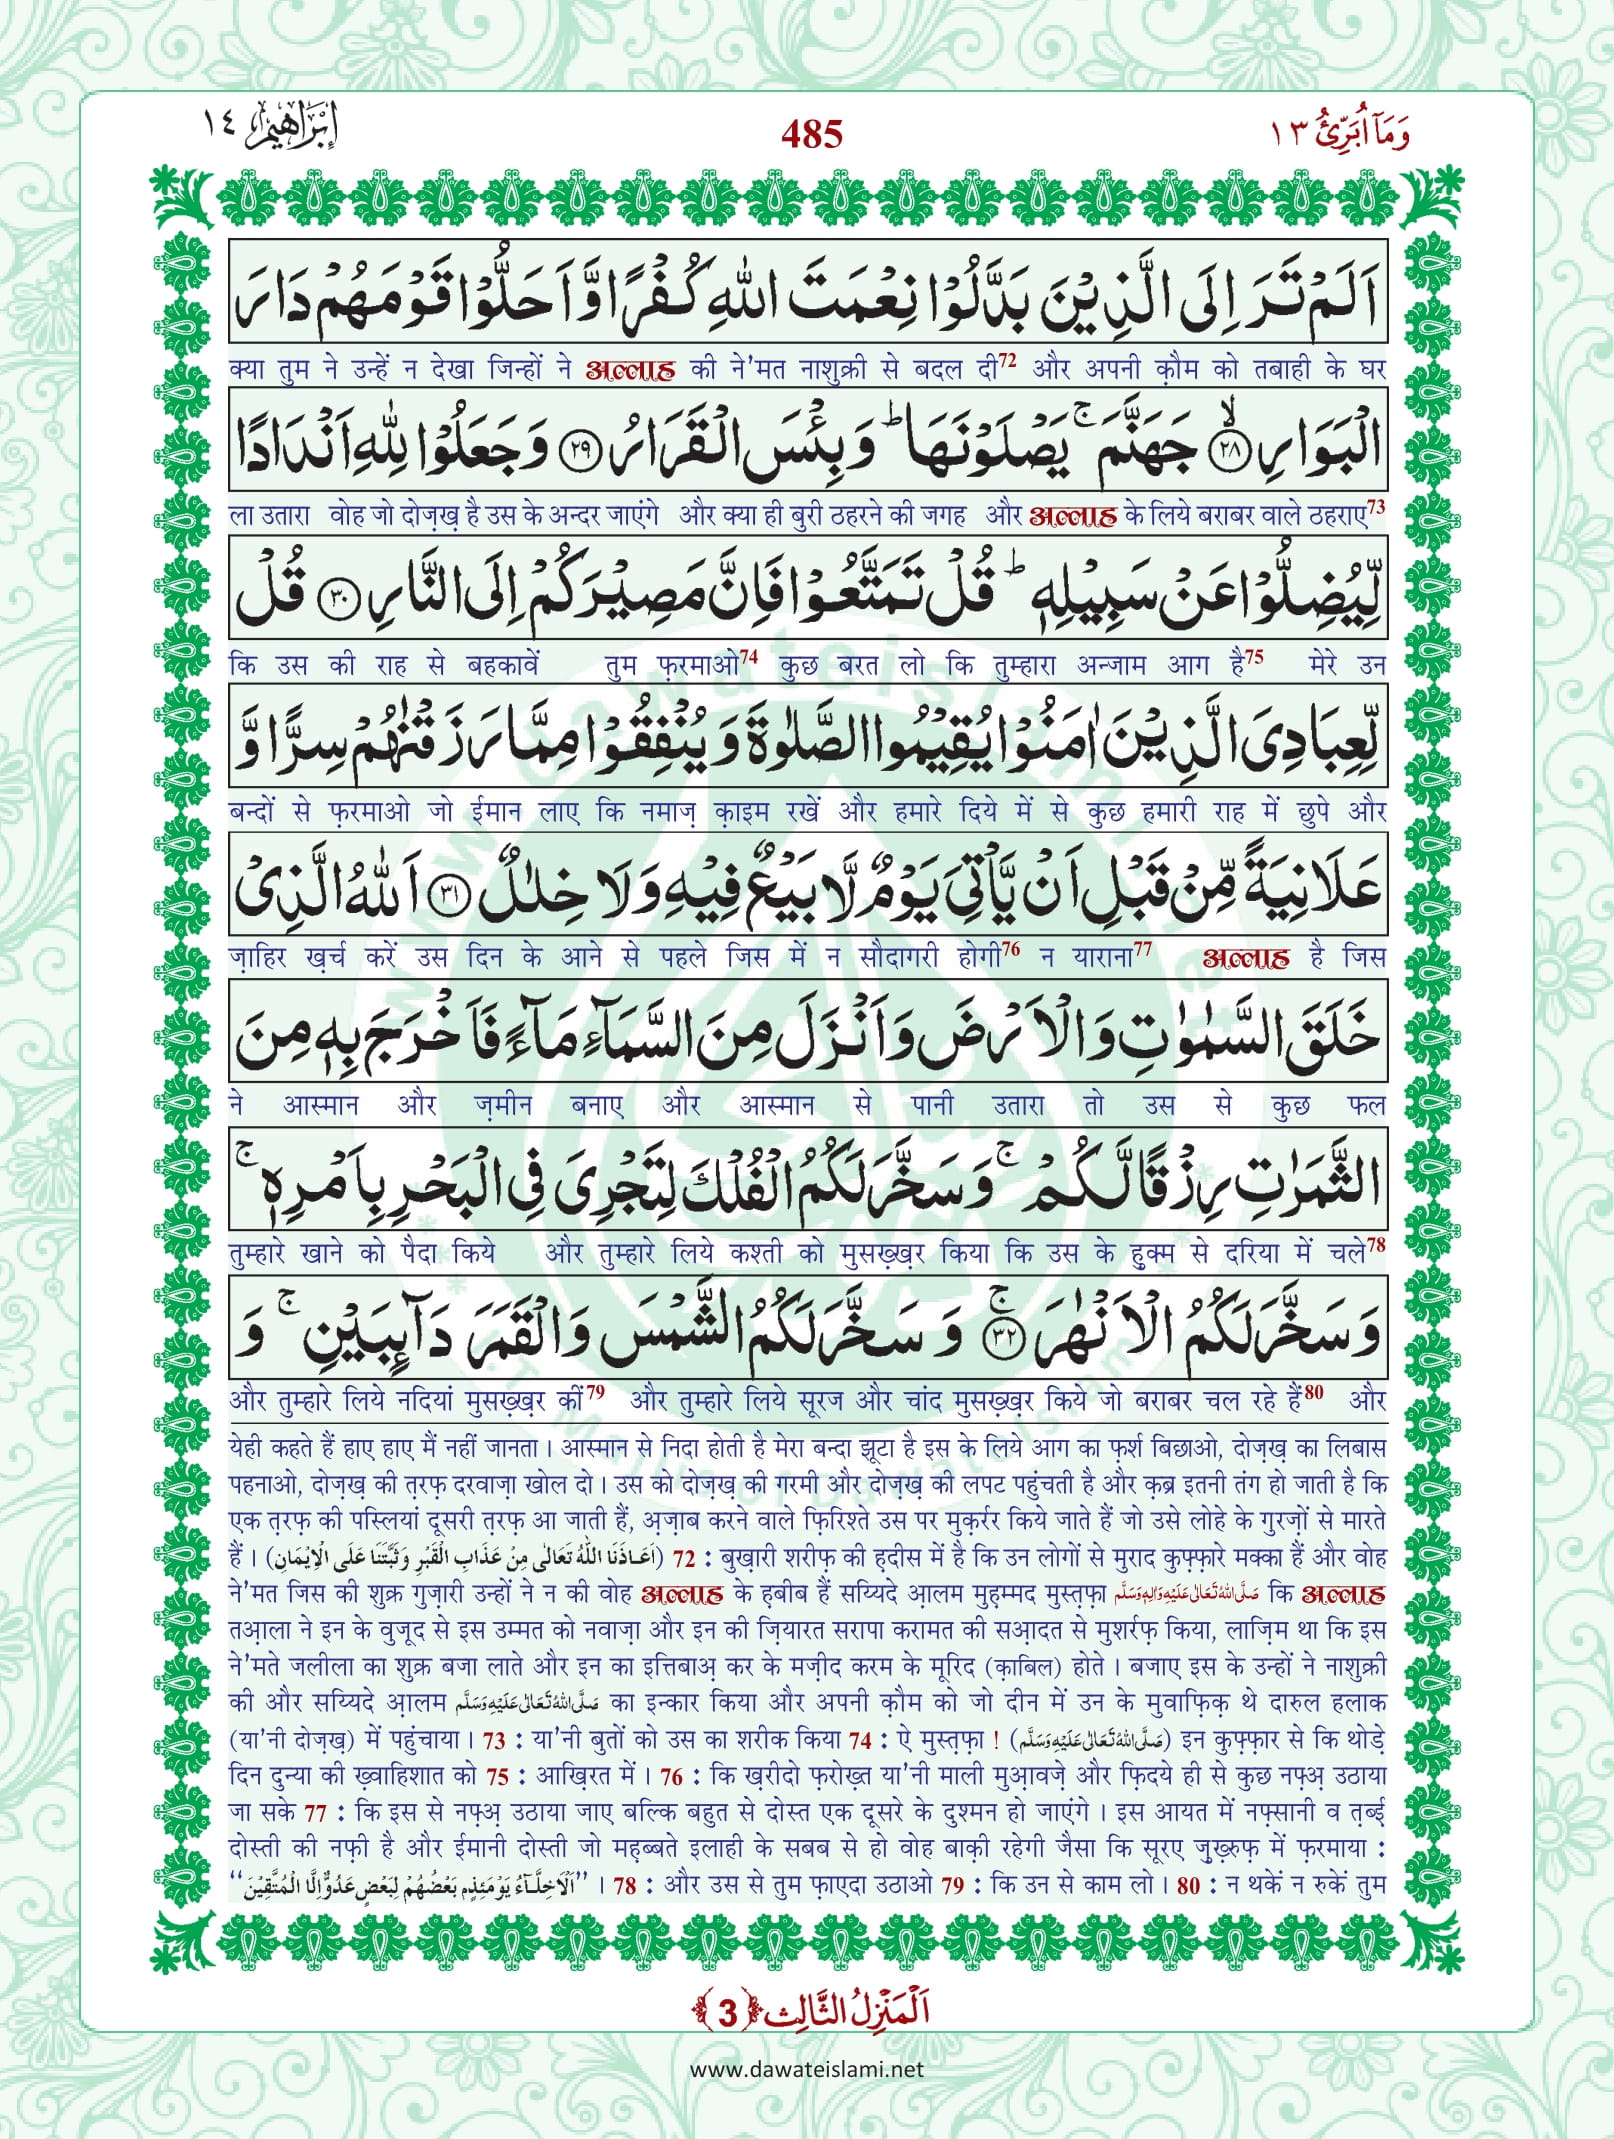 اِبْرٰهِيْم ١٤ 485 وَمَآ اُبَرِّئُ ١٣
اَلَمْ تَرَ اِلَى الَّذِيْنَ بَدَّلُوْا نِعْمَتَ اللّٰهِ كُفْرًا وَّ اَحَلُّوْا قَوْمَهُمْ دَارَ
क्या तुम ने उन्हें न देखा जिन्हों ने अल्लाह की ने'मत नाशुक्री से बदल दी72 और अपनी क़ौम को तबाही के घर
الْبَوَارِۙ﴿۲۸﴾ جَهَنَّمَۚ يَصْلَوْنَهَاؕ وَ بِئْسَ الْقَرَارُ﴿۲۹﴾ وَ جَعَلُوْا لِلّٰهِ اَنْدَادًا
ला उतारा वोह जो दोज़ख़ है उस के अन्दर जाएंगे और क्या ही बुरी ठहरने की जगह और अल्लाह के लिये बराबर वाले ठहराए73
لِّيُضِلُّوْا عَنْ سَبِيْلِهٖؕ قُلْ تَمَتَّعُوْا فَاِنَّ مَصِيْرَكُمْ اِلَى النَّارِ﴿۳۰﴾ قُلْ
कि उस की राह से बहकावें तुम फ़रमाओ74 कुछ बरत लो कि तुम्हारा अन्जाम आग है75 मेरे उन
لِّعِبَادِيَ الَّذِيْنَ اٰمَنُوْا يُقِيْمُوا الصَّلٰوةَ وَ يُنْفِقُوْا مِمَّا رَزَقْنٰهُمْ سِرًّا وَّ
बन्दों से फ़रमाओ जो ईमान लाए कि नमाज़ क़ाइम रखें और हमारे दिये में से कुछ हमारी राह में छुपे और
عَلَانِيَةً مِّنْ قَبْلِ اَنْ يَّاْتِيَ يَوْمٌ لَّا بَيْعٌ فِيْهِ وَ لَا خِلٰلٌ﴿۳۱﴾ اَللّٰهُ الَّذِيْ
ज़ाहिर ख़र्च करें उस दिन के आने से पहले जिस में न सौदागरी होगी76 न याराना77 अल्लाह है जिस
خَلَقَ السَّمٰوٰتِ وَ الْاَرْضَ وَ اَنْزَلَ مِنَ السَّمَآءِ مَآءً فَاَخْرَجَ بِهٖ مِنَ
ने आस्मान और ज़मीन बनाए और आस्मान से पानी उतारा तो उस से कुछ फल
الثَّمَرٰتِ رِزْقًا لَّكُمْۚ وَ سَخَّرَ لَكُمُ الْفُلْكَ لِتَجْرِيَ فِي الْبَحْرِ بِاَمْرِهٖۚ
तुम्हारे खाने को पैदा किये और तुम्हारे लिये कश्ती को मुसख़्ख़र किया कि उस के हुक्म से दरिया में चले78
وَ سَخَّرَ لَكُمُ الْاَنْهٰرَۚ﴿۳۲﴾ وَ سَخَّرَ لَكُمُ الشَّمْسَ وَ الْقَمَرَ دَآىِٕبَيْنِۚ وَ
और तुम्हारे लिये नदियां मुसख़्ख़र कीं79 और तुम्हारे लिये सूरज और चांद मुसख़्ख़र किये जो बराबर चल रहे हैं80 और
येही कहते हैं हाए हाए मैं नहीं जानता । आस्मान से निदा होती है मेरा बन्दा झूटा है इस के लिये आग का फ़र्श बिछाओ, दोज़ख़ का लिबास
पहनाओ, दोज़ख़ की त़रफ़ दरवाज़ा खोल दो । उस को दोज़ख़ की गरमी और दोज़ख़ की लपट पहुंचती है और क़ब्र इतनी तंग हो जाती है कि
एक त़रफ़ की पस्लियां दूसरी त़रफ़ आ जाती हैं, अ़ज़ाब करने वाले फ़िरिश्ते उस पर मुक़र्रर किये जाते हैं जो उसे लोहे के गुरज़ों से मारते
हैं । (اَعَاذَنَا اللّٰهُ تَعَالٰى مِنْ عَذَابِ الْقَبْرِ وَثَبَّتَنَا عَلَى الْاِيْمَانِ) 72 : बुख़ारी शरीफ़ की ह़दीस में है कि उन लोगों से मुराद कुफ़्फ़ारे मक्का हैं और वोह
ने'मत जिस की शुक्र गुज़ारी उन्हों ने न की वोह अल्लाह के ह़बीब हैं सय्यिदे आ़लम मुह़म्मद मुस्त़फ़ा صَلَّى اللّٰهُ تَعَالٰى عَلَيْهِ وَاٰلِهٖ وَسَلَّم कि अल्लाह
तआ़ला ने इन के वुजूद से इस उम्मत को नवाज़ा और इन की ज़ियारत सरापा करामत की सआ़दत से मुशर्रफ़ किया, लाज़िम था कि इस
ने'मते जलीला का शुक्र बजा लाते और इन का इत्तिबाअ़ कर के मज़ीद करम के मूरिद (क़ाबिल) होते । बजाए इस के उन्हों ने नाशुक्री
की और सय्यिदे आ़लम صَلَّى اللّٰهُ تَعَالٰى عَلَيْهِ وَسَلَّم का इन्कार किया और अपनी क़ौम को जो दीन में उन के मुवाफ़िक़ थे दारुल हलाक
(या'नी दोज़ख़) में पहुंचाया । 73 : या'नी बुतों को उस का शरीक किया 74 : ऐ मुस्त़फ़ा ! (صَلَّى اللّٰهُ تَعَالٰى عَلَيْهِ وَسَلَّم) इन कुफ़्फ़ार से कि थोड़े
दिन दुन्या की ख़्वाहिशात को 75 : आख़िरत में । 76 : कि ख़रीदो फ़रोख़्त या'नी माली मुआ़वज़े और फ़िदये ही से कुछ नफ़्अ़ उठाया
जा सके 77 : कि इस से नफ़्अ़ उठाया जाए बल्कि बहुत से दोस्त एक दूसरे के दुश्मन हो जाएंगे । इस आयत में नफ़्सानी व त़ब्ई
दोस्ती की नफ़ी है और ईमानी दोस्ती जो मह़ब्बते इलाही के सबब से हो वोह बाक़ी रहेगी जैसा कि सूरए ज़ुख़्रुफ़ में फ़रमाया :
“اَلْاَخِلَّآءُ يَوْمَئِذٍۭ بَعْضُهُمْ لِبَعْضٍ عَدُوٌّ اِلَّا الْمُتَّقِيْنَ” । 78 : और उस से तुम फ़ाएदा उठाओ 79 : कि उन से काम लो । 80 : न थकें न रुकें तुम
اَلْمَنْزِلُ الثَّالِث ﴿3﴾
www.dawateislami.net